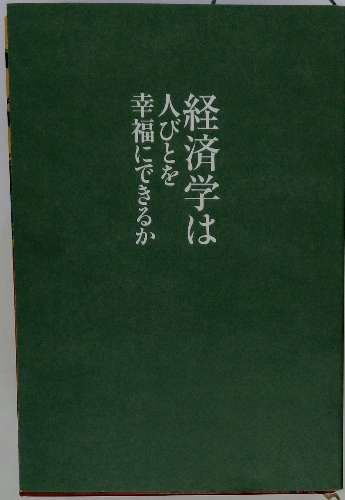 経済学は
人びとを
幸福にできるか